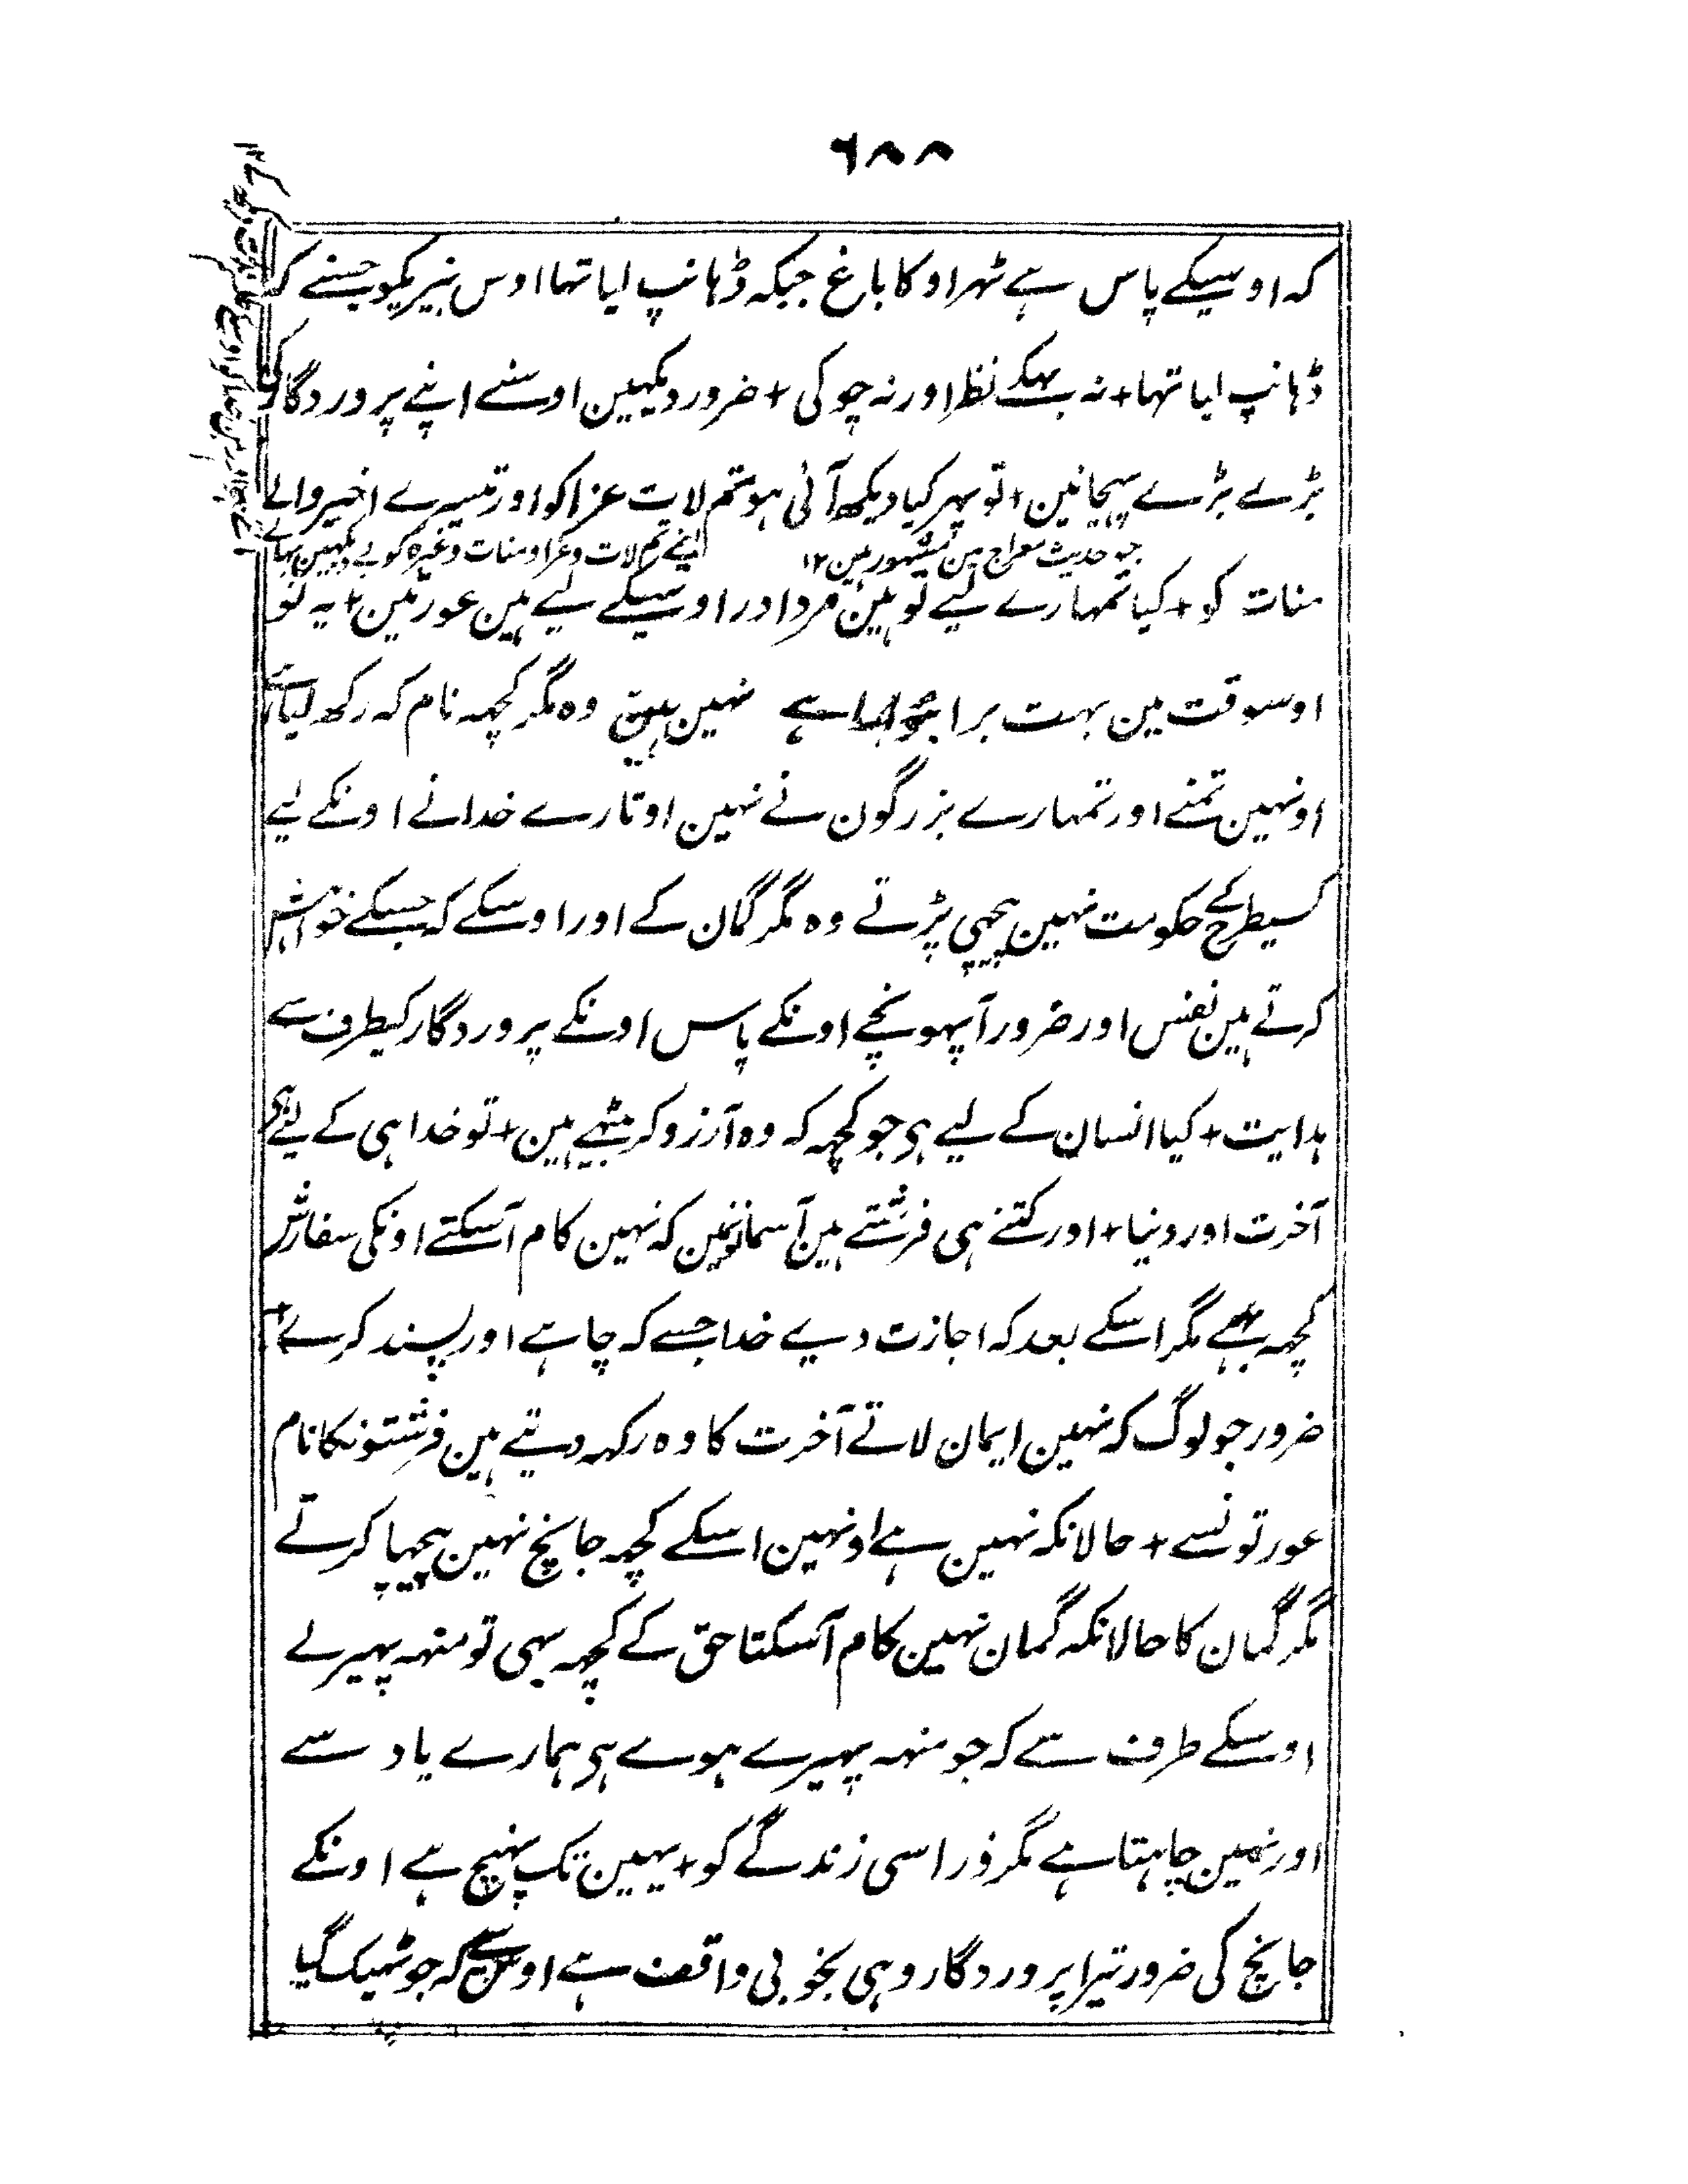 ٦٨٨
کہ اوسیکے پاس ہے ٹھراو کا باغ جبکہ ڈہانپ لیا تہا اوس بیریکو جسنے کہ
ڈہانپ لیا تہا + نہ بہکے نظر اور نہ چوکی + ضرور دیکہین اوسنے اپنے پروردگار کے
بڑے بڑے پہچانین + تو پہر کیا دیکھ آئی ہو تم لات عزا کو اور تیسرے اخیر والے
جو حدیث معراج مین مشہور ہین ١٢ اپنے تم لات و عزا و منات وغیرہ کو بے دیکہین
منات کو + کیا تمہارے لیے تو ہین مرد اور اوسیکے لیے ہین عورتین + یہ تو
اوسوقت مین بہت برا ہے نہین ہین وہ مگر کچہہ نام کہ رکھ لیا ہے
اونہین تمنے اور تمہارے بزرگون نے نہین اوتارے خدا نے اونکے لیے
کسیطرح کے حکومت نہین پیچہی پڑتے وہ مگر گمان کے اور اوسکے کہ جسکے خواہش
کرتے ہین نفس اور ضرور آپہونچے اونکے پاس اونکے پروردگار کیطرف سے
ہدایت + کیا انسان کے لیے ہی جو کچہہ کہ وہ آرزو کر بیٹھے ہین + تو خدا ہی کے لیے ہی
آخرت اور دنیا + اور کتنے ہی فرشتے ہین آسمانونمین کہ نہین کام آسکتے اونکی سفارش
کچہہ بہے مگر اسکے بعد کہ اجازت دیے خدا جسے کہ چاہے اور پسند کرے +
ضرور جو لوگ کہ نہین ایمان لاتے آخرت کا وہ رکہہ دیتے ہین فرشتونکا نام
عورتونسے + حالانکہ نہین ہے اونہین اسکے کچہہ جانچ نہین پیچہا کرتے
مگر گمان کا حالانکہ گمان نہین کام آسکتا حق کے کچہہ بہی تو منہہ پہیر لے
اوسکے طرف سے کہ جو منہہ پہیرے ہوے ہی ہمارے یاد سے
اور نہین چاہتا ہے مگر ذرا سی زندگے کو + یہین تک پہنچ ہے اونکے
جانچ کی ضرور تیرا پروردگار وہی بخوبی واقف ہے اوس سے کہ جو ٹہیک گیا